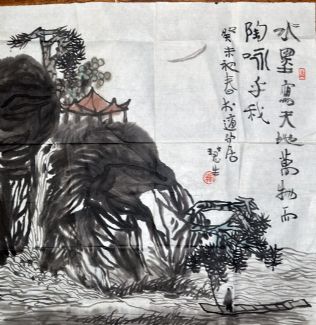 水墨寫天地萬物而
陶咏乎我
癸未初春於適竹居